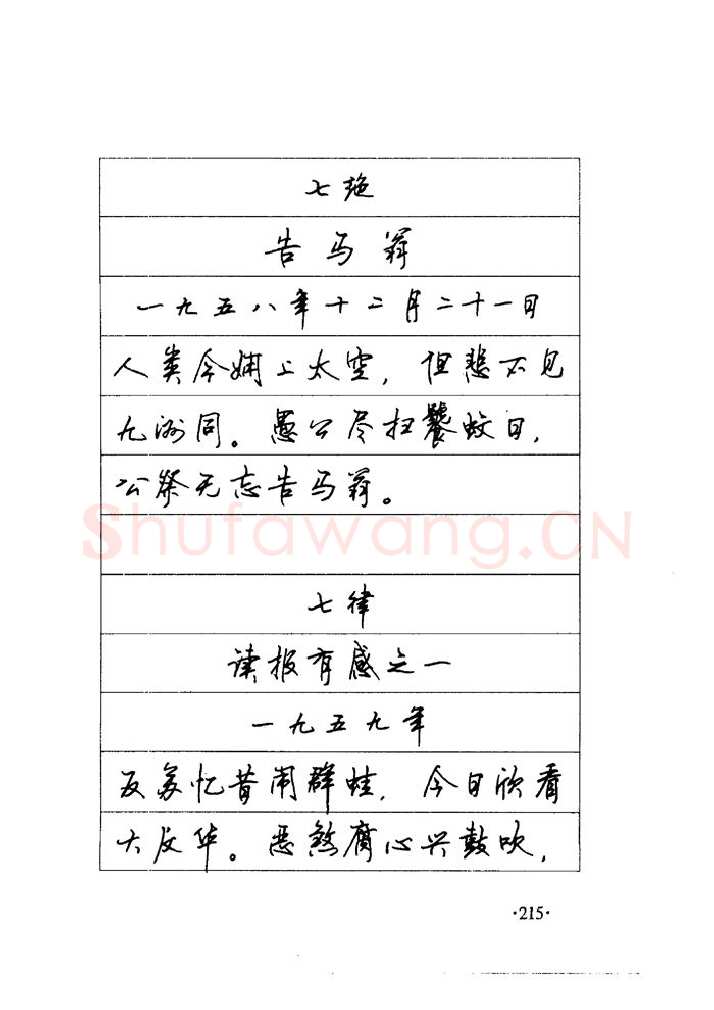 七绝
告马翁
一九五八年十二月二十一日
人类今娴上太空，但悲不见
九洲同。愚公尽扫饕蚊日，
公祭无忘告马翁。
Shufawang.CN
七律
读报有感之一
一九五九年
反苏忆昔闹群蛙，今日欣看
大反华。恶煞腐心兴鼓吹，
·215·